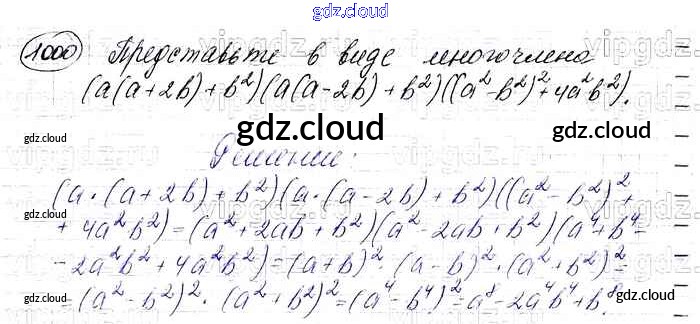 gdz.cloud
1000 Представьте в виде многочлена
(a(a+2b)+b²)(a(a-2b)+b²)((a²-b²)²+4a²b²).
gdz.cloud
gdz.cloud
gdz.cloud
Решение:
(a·(a+2b)+b²)(a·(a-2b)+b²)((a²-b²)²+
gdz.cloud
gdz.cloud
+4a²b²)=(a²+2ab+b²)(a²-2ab+b²)(a⁴+b⁴-
-2a²b²+4a²b²)=(a+b)²·(a-b)²·(a²+b²)²=
=(a²-b²)²·(a²+b²)²=(a⁴-b⁴)²=a⁸-2a⁴b⁴+b⁸.
gdz.cloud
gdz.cloud